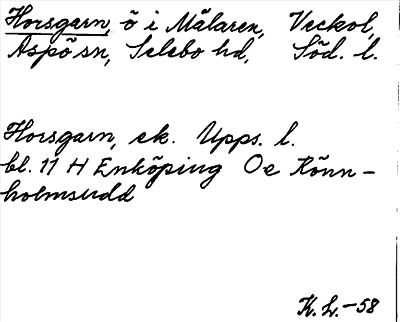 Horsgarn, ö i Mälaren, Veckol,
Aspö sn, Selebo hd, Söd. l.
Horsgarn, ek. Upps. l.
bl. 11 H Enköping Oe Rönn-
holmsudd
K. L. -58